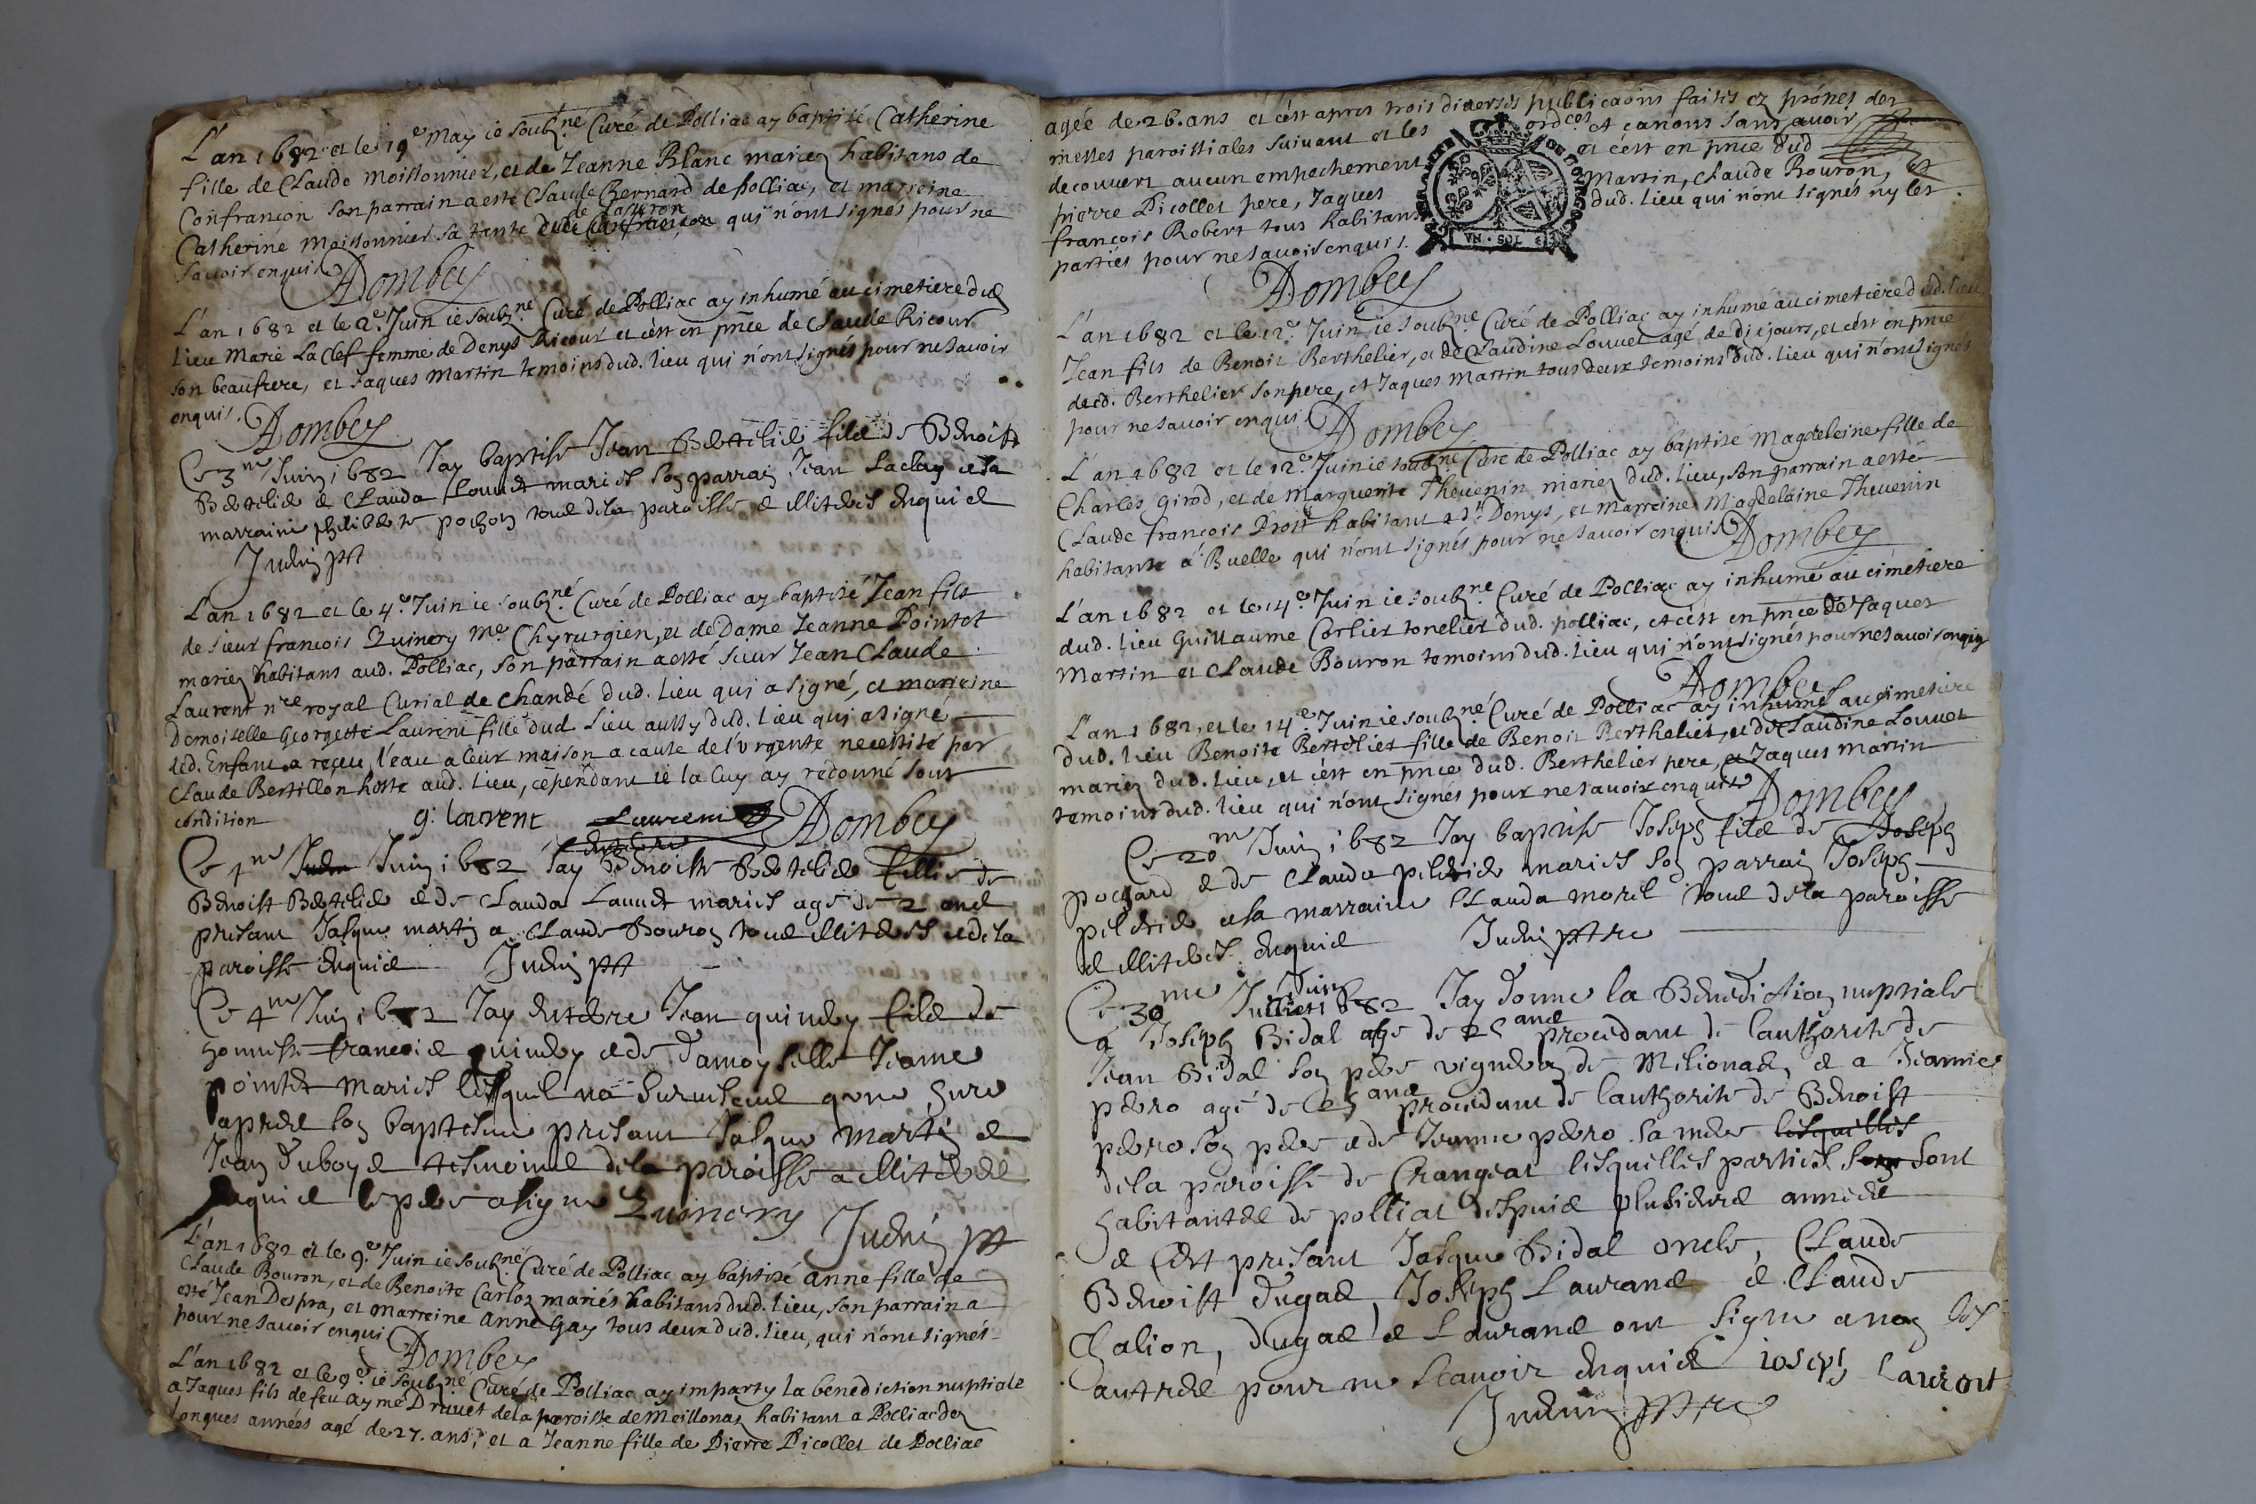 L'an 1682 et le 19e May ie soubzne Curé de Polliac ay baptisé Catherine
fille de Claude Moissonnier, et de Jeanne Blanc mariez habitans de
Confrançon son parrain a esté Claude Bernard de Polliac, et marreine
Catherine Moissonnier sa tante qui n'ont signés pour ne
savoir enquis Dombey
L'an 1682 et le 2e Juin ie soubzne Curé de Polliac ay inhumé au cimetiere dud
lieu Marie Laclef femme de Denys Ricour et c'est en pnce de Claude Ricour
son beaufrere, et Jaques Martin temoins dud. lieu qui n'ont signés pour ne savoir
enquis. Dombey
Ce 3me Juin 1682 Jay baptise Jean Bertelier filz de Benoist
Bertelier et Clauda Louvet maries son parrain Jean Laclay et sa
marraine philiberte pochon tous dela paroisse et illiteres enquis
Judin ptr
L'an 1682 et le 4e Juin ie soubzné Curé de Polliac ay baptisé Jean fils
de sieur francois Quinery Me Chyrurgien, et de Dame Jeanne Pointet
mariez habitans aud. Polliac, son parrain a esté sieur Jean Claude
Laurent nre royal Curial de Chandé dud. lieu qui a signé, et marreine
Demoiselle Georgette Laurent fille dud. lieu aussy dud. lieu qui a signé
led. Enfant a reçeu l'eau a leur maison a cause de l'urgente necessité par
Claude Bertillon hoste aud. lieu, cependant ie la luy ay redonné sout
condition g. laurent Laurent Dombey
Ce 4me Juin 1682 Jay enterre Benoiste Bertelier fillie de
Benoist Bertelier et de Clauda Louvet maries agé de 2 ans
present Jasque martin et Claude Bouron tous illiteres et dela
paroisse enquis Judin ptr
Ce 4me Juin 1682 Jay enterre Jean quinery filz de
honneste francois quinery et de damoyselle Jeanne
pointet maries lesquel na survescu qune hure
apres son baptesme present Jasque Martin et
Jean duboys tesmoins dela paroisse illiteres
enquis le pere a signe Quinery Judin ptr
L'an 1682 et le 9e Juin ie soubzné Curé de Polliac ay baptisé Anne fille de
Claude Bouron, et de Benoite Carloz mariés habitans dud. lieu, son parrain a
esté Jean Despra, et marreine Anne Gay tous deux dud. lieu, qui n'ont signés
pour ne savoir enquis Dombey
L'an 1682 et le 9e ie soubzne Curé de Polliac ay imparty la benediction nuptiale
a Jaques fils de feu Aymé Druuet dela paroisse de Meillonaz habitant a Polliac dez
longues années agé de 27. ans, et a Jeanne fille de Pierre Picollet de Polliac
agée de 26. ans et c'est apres trois diverses publicaoins faites ez prônes des
messes paroissiales suivant et les ordces et canons sans avoir
decouvert aucun empechement et c'est en pnce dud
pierre Picollet pere, Jaques Martin, Claude Bouron, et
françois Robert tous habitans dud. lieu qui n'ont signés ny les
parties pour ne savoir enquis.
VN · SOL
Dombey
L'an 1682 et le 12e Juin ie soubzne Curé de Polliac ay inhumé au cimetiere dud. lieu
Jean fils de Benoit Berthelier, et de Claudine Louvet agé de dix jours, et c'est en pnce
dud. Berthelier son pere, et Jaques Martin tous deux temoins dud. lieu qui n'ont signés
pour ne savoir enquis Dombey
L'an 1682 et le 12e Juin ie soubzné Curé de Polliac ay baptisé Magdeleine fille de
Charles Girod, et de Marguerite Thevenin mariez dud. lieu, son parrain a esté
Claude françois Proit habitant a St Denys, et marreine Magdelaine Thevenin
habitante a Buelle qui n'ont signés pour ne savoir enquis Dombey
L'an 1682 et le 14e Juin ie soubzne Curé de Polliac ay inhumé au cimetiere
dud. lieu Guillaume Corlier tonelier dud. polliac, et c'est en pnce de Jaques
Martin et Claude Bouron temoins dud. lieu qui n'ont signés pour ne savoir enquis
Dombey
L'an 1682, et le 14e Juin ie soubzné Curé de Polliac ay inhumé au cimetiere
dud. lieu Benoite Bertelier fille de Benoit Berthelier, et de Claudine Louvet
mariez dud. lieu, et c'est en pnce dud. Berthelier pere, et Jaques Martin
temoins dud. lieu qui n'ont signés pour ne savoir enquis Dombey
Ce 20me Juin 1682 Jay baptise Joseph filz de Joseph
pochard et de Clauda peldrier maries son parrain Joseph
peldrier et sa marraine Clauda morel tous dela paroisse
et illiteres enquis Judin ptre
Juin
Ce 30me Juillet 1682 Jay donne la Benediction nuptiale
a Joseph Bidal age de 25 ans procedant de lauthorite de
Jean Bidal son pere vigneron de Melionas, et a Jeanne
pero agé de 25 ans procedant de lauthorite de Benoist
pero son pere et de Jeanne pero sa mere lesquelles
dela paroisse de Crangeat lesquelles parties sont
habitantes de polliat despuis plusieurs annees
et cest present Jasque Bidal oncle, Claude
Benoist dugas, Joseph Laurand et Claude
Chalion, dugas et Laurand ont signe a non les
autres pour ne scavoir enquis ioseph Lauront
Judin ptre